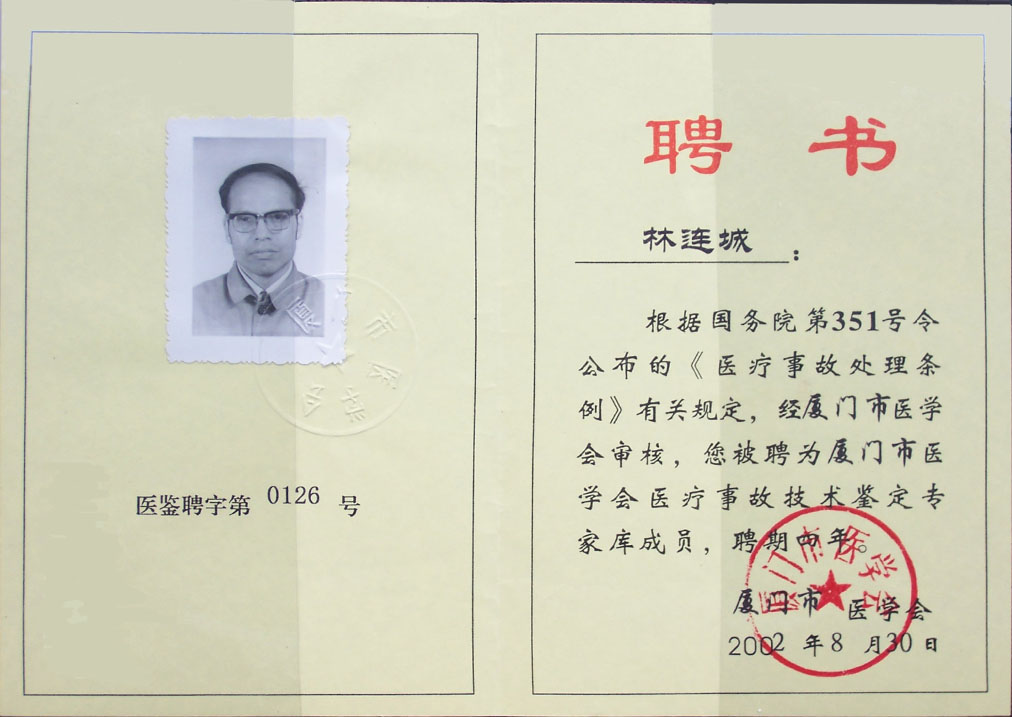 医鉴聘字第 0126 号
聘 书
林连城：
根据国务院第351号令
公布的《医疗事故处理条
例》有关规定，经厦门市医学
会审核，您被聘为厦门市医
学会医疗事故技术鉴定专
家库成员，聘期四年。
厦门市医学会
厦门市 医学会
2002 年 8 月 30 日